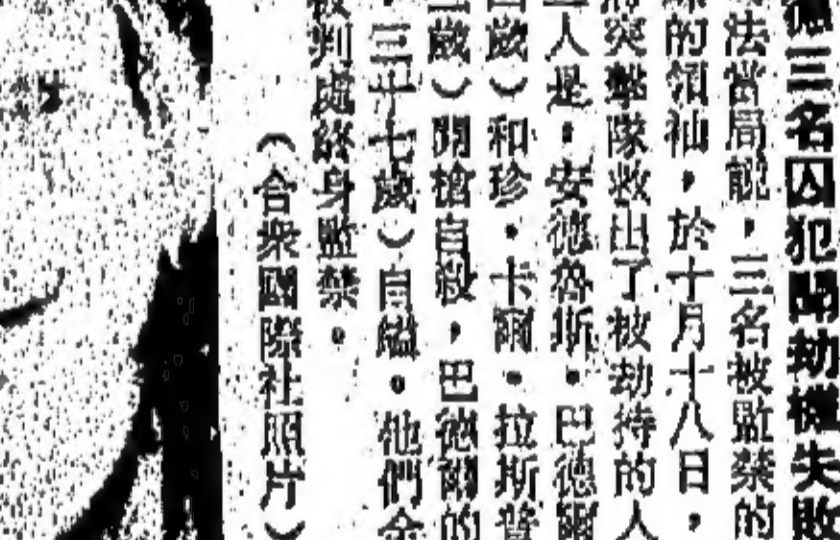 三名囚犯聞劫機失敗
法當局說，三名被監禁的
的領袖，於十月十八日，
突擊隊救出了被劫持的人
人是：安德魯斯·巴德爾
歲）和珍·卡爾·拉斯普
歲）開槍自殺，巴德爾的
三十七歲）自縊。他們全
被判處終身監禁。
（合衆國際社照片）